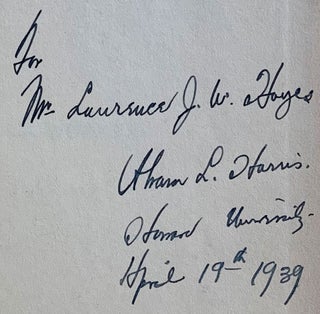 For
Mr. Lawrence J. W. Hayes
Abram L. Harris.
Howard University.
April 19th 1939